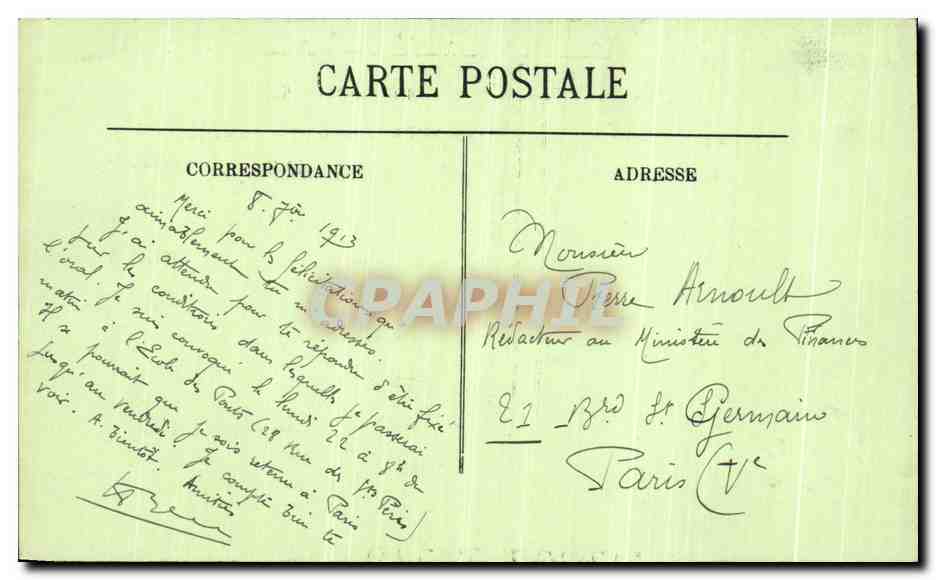 CARTE POSTALE
CORRESPONDANCE
8. 7bre 1913
Merci pour les félicitations qu'
aimablement tu m'adresses.
J'ai attendu pour te répondre d'être fixé
sur les conditions dans lesquelles je passerai
l'oral. Je suis convoqué le lundi 22 à 8h du
matin à l'Ecole des Ponts (28 Rue des Sts Pères)
Il se pourrait que je sois retenu à Paris
jusqu'au vendredi. Je compte bien te
voir. A bientôt.
Amitiés
ADRESSE
Monsieur
Pierre Arnoult
Rédacteur au Ministère des Finances
21 Brd St Germain
Paris (Ve
CPAPHIL